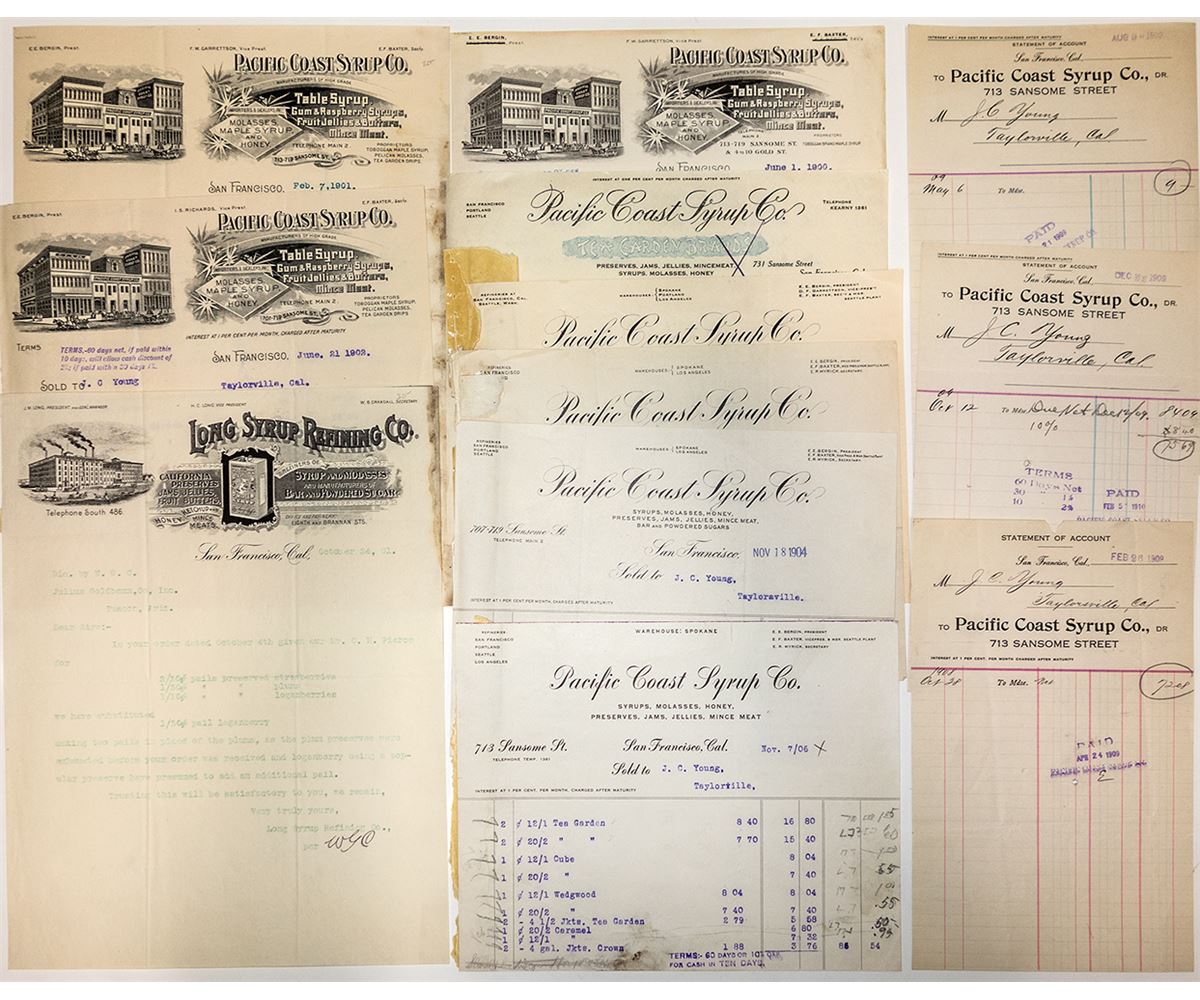 E.E. BERGIN, Prest.
F.W. GARRETTSON, Vice Prest.
E.F. BAXTER, Secty.
PACIFIC COAST SYRUP CO.
MANUFACTURERS OF HIGH GRADE
Table Syrup
Gum & Raspberry Syrups,
Fruit Jellies & Butters,
Mince Meat.
IMPORTERS & DEALERS IN
MOLASSES,
MAPLE SYRUP,
AND
HONEY.
TELEPHONE MAIN 2.
713-719 SANSOME ST.
PROPRIETORS
TOBOGGAN MAPLE SYRUP,
PELICAN MOLASSES,
TEA GARDEN DRIPS.
SAN FRANCISCO, Feb. 7, 1901.
E.E. BERGIN, Prest.
I.S. RICHARDS, Vice Prest.
E.F. BAXTER, Secty.
PACIFIC COAST SYRUP CO.
MANUFACTURERS OF HIGH GRADE
Table Syrup
Gum & Raspberry Syrups,
Fruit Jellies & Butters,
Mince Meat.
IMPORTERS & DEALERS IN
MOLASSES,
MAPLE SYRUP,
AND
HONEY.
TELEPHONE MAIN 2.
707-719 SANSOME ST.
PROPRIETORS
TOBOGGAN MAPLE SYRUP,
PELICAN MOLASSES,
TEA GARDEN DRIPS
INTEREST AT 1 PER CENT PER MONTH, CHARGED AFTER MATURITY
TERMS
TERMS.-60 days net, if paid within
10 days, will allow cash discount of
2% if paid within 30 days 1%.
SAN FRANCISCO, June. 21 1902.
SOLD TO J. C Young
Taylorville, Cal.
J.W. LONG, PRESIDENT AND GENL MANAGER
H.C. LONG VICE PRESIDENT
W.B. CRANDALL, SECRETARY
LONG SYRUP REFINING CO.
CALIFORNIA
PRESERVES
JAMS, JELLIES,
FRUIT BUTTERS,
HONEY, KETCHUP AND
MINCE
MEATS.
REFINERS OF
SYRUP AND MOLASSES
AND MANUFACTURERS OF
BAR AND POWDERED SUGAR
OFFICE AND REFINERY
EIGHTH AND BRANNAN STS.
Telephone South 486.
San Francisco, Cal. October 24, 01.
Dic. by W. G. C.
Julius Goldbaum, Co, Inc.
Tucson, Ariz.
Dear Sirs:-
In your order dated October 4th given our Mr. C. N. Pierce
for
2/30# pails preserved strawberries
1/30# " " plums
1/30# " " loganberries
we have substituted
1/30# pail loganberry
making two pails in place of the plums, as the plum preserves were
exhausted before your order was received and loganberry being a pop-
ular preserve have presumed to add an additional pail.
Trusting this will be satisfactory to you, we remain,
Very truly yours,
Long Syrup Refining Co.,
per WGC
E. E. BERGIN,
F.W. GARRETTSON, Vice Prest.
E. F. BAXTER, Secty.
PACIFIC COAST SYRUP CO.
MANUFACTURERS OF HIGH GRADE
Table Syrup
Gum & Raspberry Syrups,
Fruit Jellies & Butters,
Mince Meat.
IMPORTERS & DEALERS IN
MOLASSES,
MAPLE SYRUP,
AND
HONEY.
TELEPHONE
MAIN 2
713-719 SANSOME ST.
& 4 to 10 GOLD ST.
PROPRIETORS
TOBOGGAN BRAND MAPLE SYRUP
SAN FRANCISCO June 1. 1900.
INTEREST AT ONE PER CENT PER MONTH CHARGED AFTER MATURITY
SAN FRANCISCO
PORTLAND
SEATTLE
Pacific Coast Syrup Co.
TELEPHONE
KEARNY 1361
TEA GARDEN BRANDS
PRESERVES, JAMS, JELLIES, MINCEMEAT,
SYRUPS, MOLASSES, HONEY
731 Sansome Street
San Francisco, Cal.
REFINERIES AT
SAN FRANCISCO, CAL.
SEATTLE, WASH.
WAREHOUSES: SPOKANE
PORTLAND
LOS ANGELES
E. E. BERGIN, PRESIDENT
D. F. GARRETTSON, VICE-PREST
E. F. BAXTER, SECTY & MGR.
SEATTLE PLANT
Pacific Coast Syrup Co.
REFINERIES
SAN FRANCISCO
WAREHOUSES: SPOKANE
LOS ANGELES
E.E. BERGIN, PRESIDENT
E.F. BAXTER, VICE PREST & MGR SEATTLE PLANT
E.R. MYRICK, SECRETARY
Pacific Coast Syrup Co.
REFINERIES
SAN FRANCISCO
PORTLAND
SEATTLE
WAREHOUSES SPOKANE
LOS ANGELES
E.E. BERGIN, PRESIDENT
E.F. BAXTER, VICE PRES & MGR SEATTLE PLANT
E.R. MYRICK, SECRETARY
Pacific Coast Syrup Co.
SYRUPS, MOLASSES, HONEY,
PRESERVES, JAMS, JELLIES, MINCE MEAT,
BAR AND POWDERED SUGARS
707-719 Sansome St.
TELEPHONE MAIN 2
San Francisco, NOV 18 1904
Sold to J. C. Young,
Tayloraville.
INTEREST AT 1 PER CENT PER MONTH, CHARGED AFTER MATURITY
REFINERIES
SAN FRANCISCO
PORTLAND
SEATTLE
LOS ANGELES
WAREHOUSE: SPOKANE
E. E. BERGIN, PRESIDENT
E. F. BAXTER, VICEPRES. & MGR. SEATTLE PLANT
E. R. MYRICK, SECRETARY
Pacific Coast Syrup Co.
SYRUPS, MOLASSES, HONEY,
PRESERVES, JAMS, JELLIES, MINCE MEAT
713 Sansome St.
TELEPHONE TEMP. 1361
San Francisco, Cal. Nov. 7/06 X
Sold to J. C. Young,
Taylorville,
INTEREST AT 1 PER CENT. PER MONTH, CHARGED AFTER MATURITY
2 ¢ 12/1 Tea Garden 8 40 16 80
2 ¢ 20/2 " " 7 70 15 40
1 ¢ 12/1 Cube 8 04
1 ¢ 20/2 " 7 40
1 ¢ 12/1 Wedgwood 8 04 8 04
1 ¢ 20/2 " 7 40 7 40
2 - 4 1/2 Jkts. Tea Garden 2 79 5 58
1 ¢ 20/2 Caramel 6 80
1 ¢ 12/1 " 7 32
2 - 4 gal. Jkts. Crown 1 88 3 76 86 54
TERMS:- 60 DAYS OR 10%
FOR CASH IN TEN DAYS.
INTEREST AT 1 PER CENT PER MONTH CHARGED AFTER MATURITY
STATEMENT OF ACCOUNT
AUG 9 - 1909
San Francisco, Cal.
TO Pacific Coast Syrup Co., DR.
713 SANSOME STREET
M J. C Young
Taylorville, Cal
09
May 6 To Mdse. 9
PAID
21 1909
INTEREST AT 1 PER CENT PER MONTH CHARGED AFTER MATURITY
STATEMENT OF ACCOUNT
DEC 1909
San Francisco, Cal.
TO Pacific Coast Syrup Co., DR.
713 SANSOME STREET
M J. C. Young
Taylorville, Cal.
09
Oct 12 To Mdse. Due Net Dec 12/09. 84 09
10% 8 40
75 69
TERMS
60 Days Net
30 " 1%
10 2%
PAID
FEB 5 1910
STATEMENT OF ACCOUNT
San Francisco, Cal., FEB 26 1909
M J. C. Young
Taylorsville, Cal
TO Pacific Coast Syrup Co., DR
713 SANSOME STREET
INTEREST AT 1 PER CENT. PER MONTH CHARGED AFTER MATURITY
1908
Oct 28 To Mdse. Net 72 08
PAID
APR 24 1909